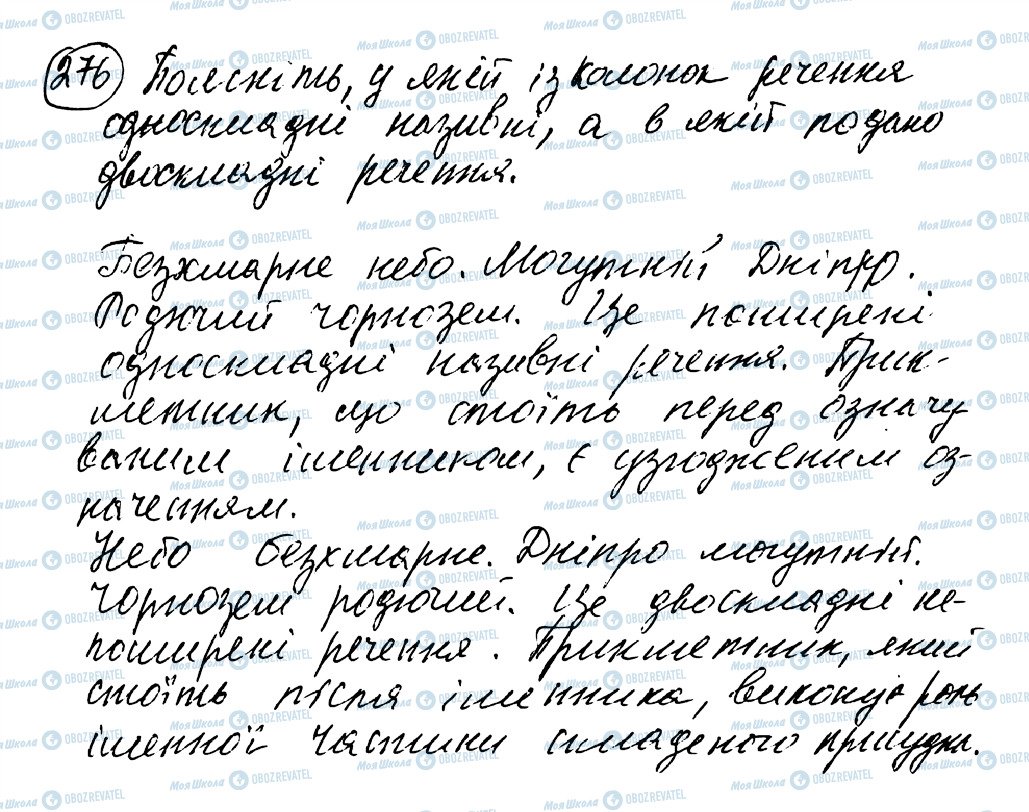 276 Поясніть, у якій із колонок речення
односкладні називні, а в якій подано
двоскладні речення.
Безхмарне небо. Могутній Дніпро.
Родючий чорнозем. Це поширені
односкладні називні речення. Прик-
метник, що стоїть перед означу
ваним іменником, є узгодженим оз-
наченням.
Небо безхмарне. Дніпро могутній.
Чорнозем родючий. Це двоскладні не-
поширені речення. Прикметник, який
стоїть після іменника, виконує роль
іменної частини складеного присудка.